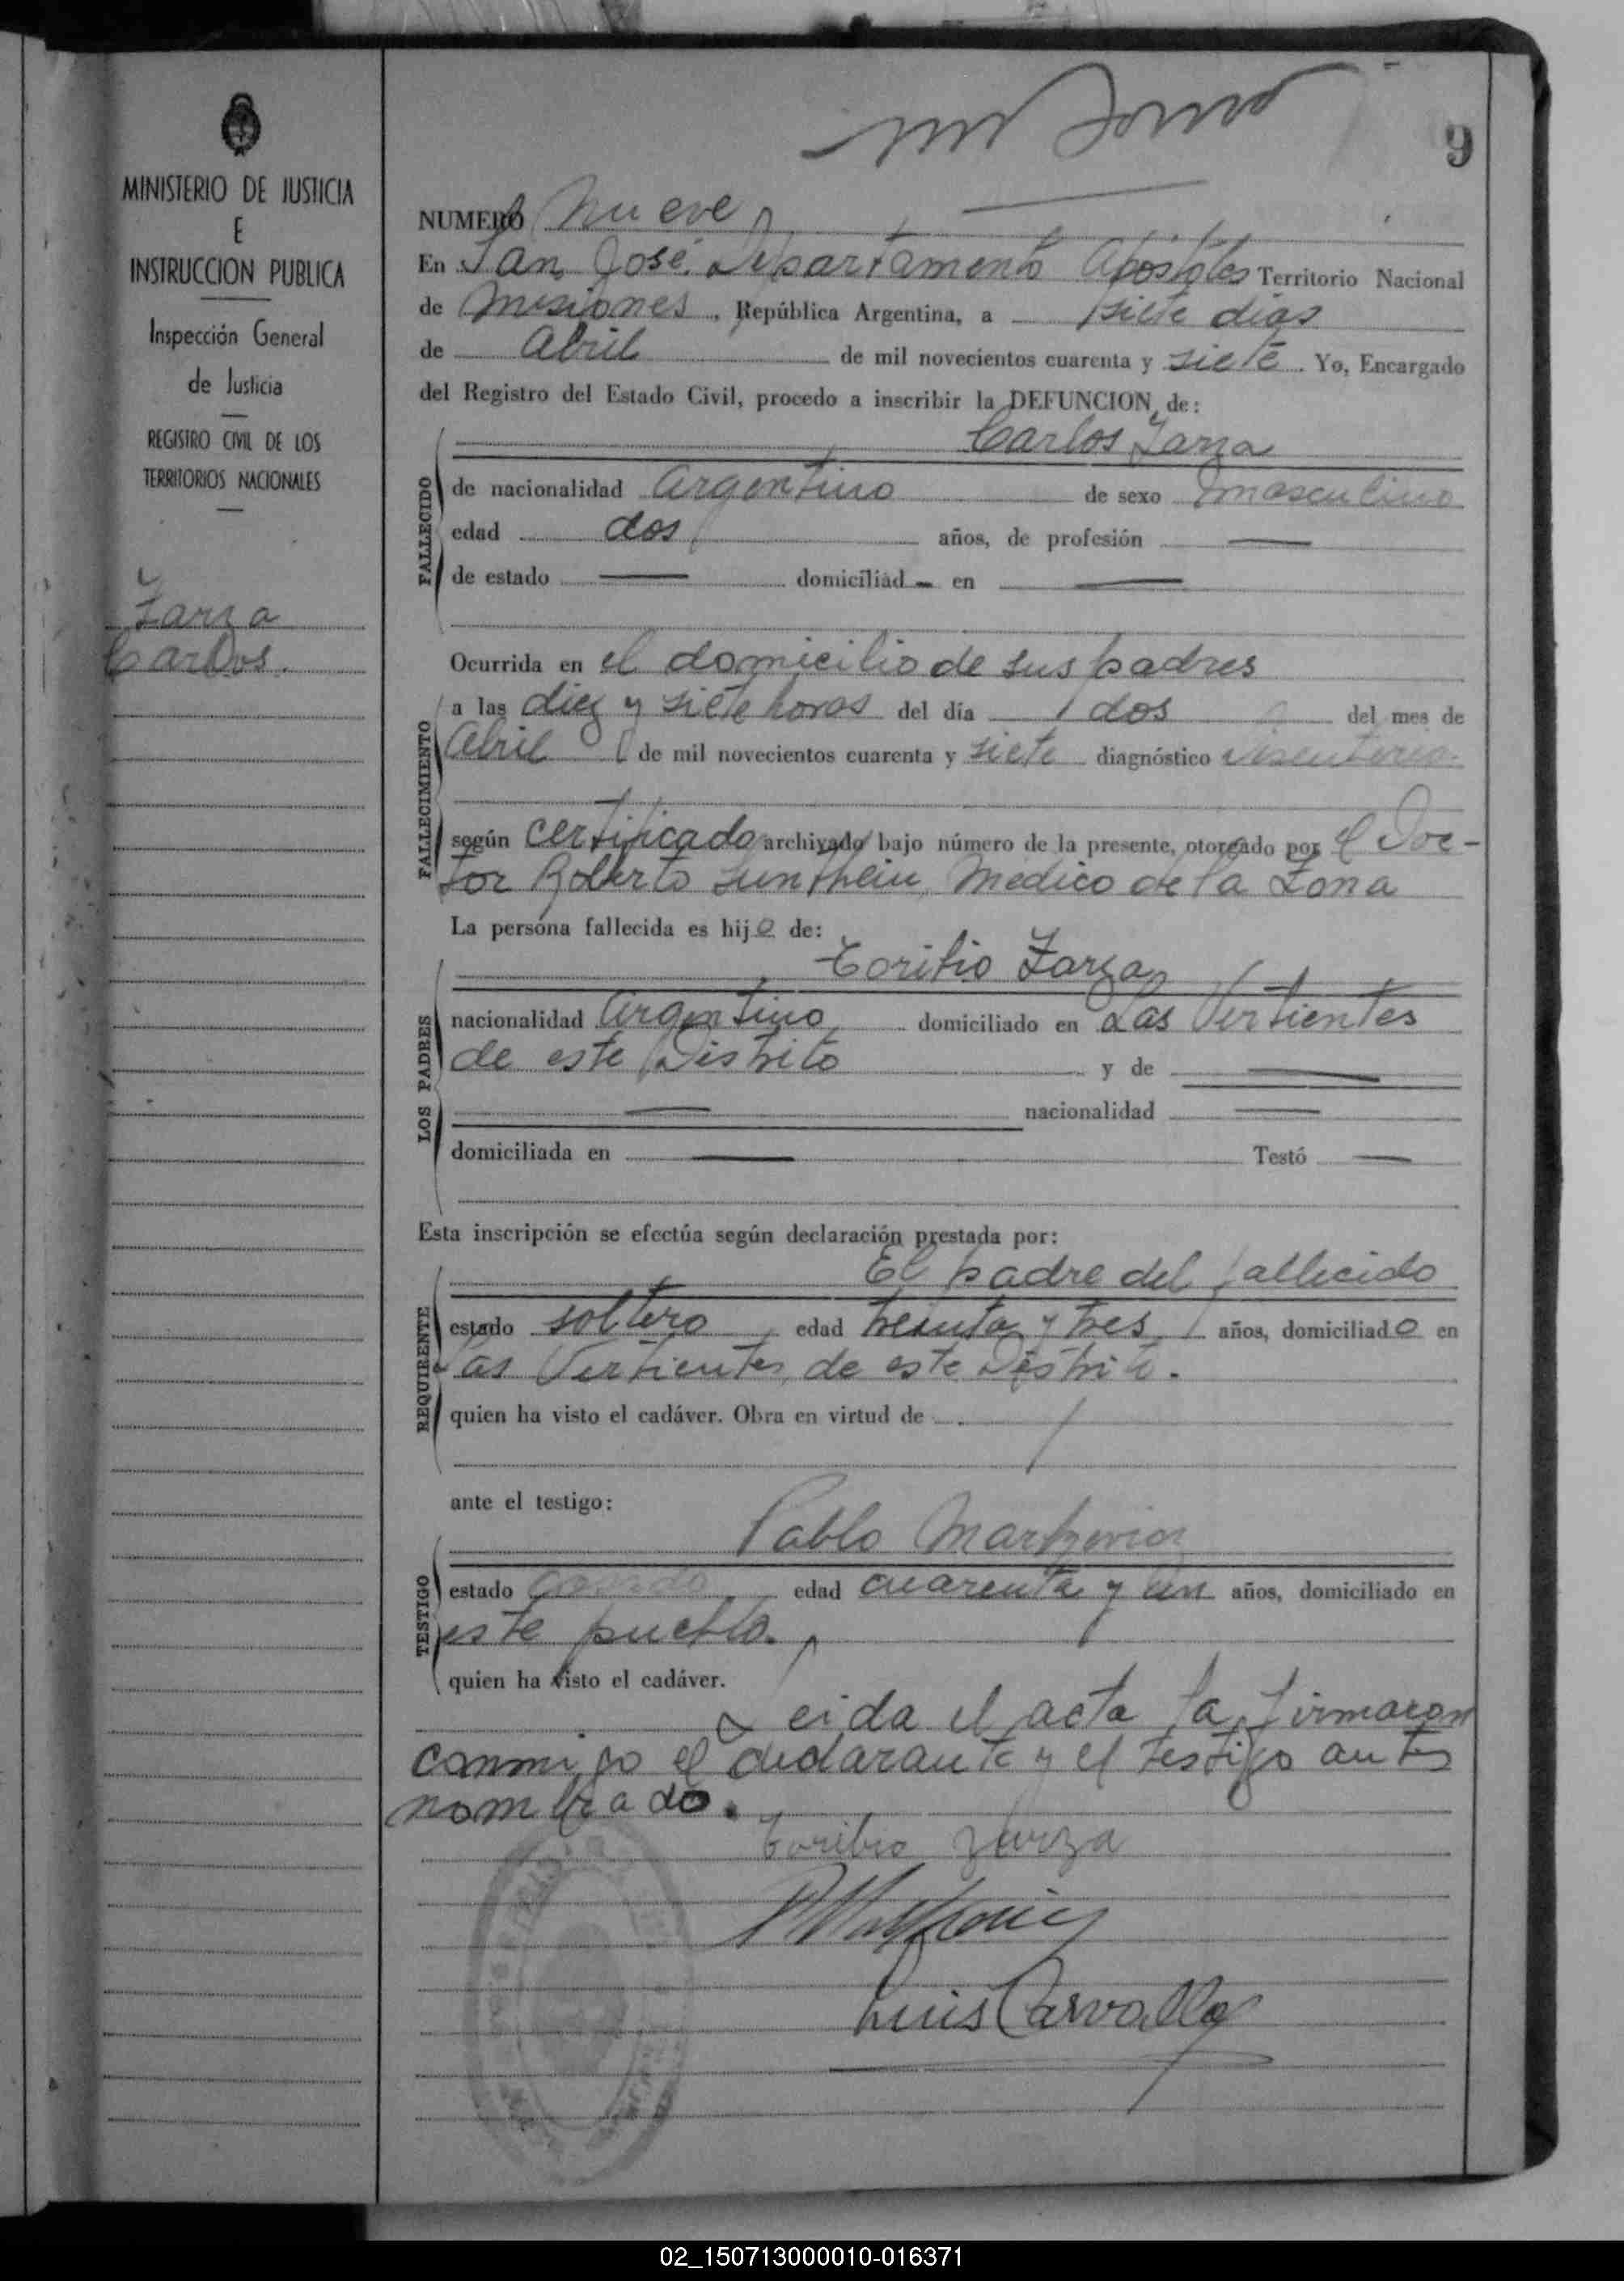 9
MINISTERIO DE JUSTICIA
E
INSTRUCCION PUBLICA
Inspección General
de Justicia
REGISTRO CIVIL DE LOS
TERRITORIOS NACIONALES
Zarza
Carlos.
NUMERO Nueve
En San José Departamento Apóstoles Territorio Nacional
de Misiones, República Argentina, a siete días
de Abril de mil novecientos cuarenta y siete. Yo, Encargado
del Registro del Estado Civil, procedo a inscribir la DEFUNCION de:
Carlos Zarza
FALLECIDO
de nacionalidad argentino de sexo masculino
edad dos años, de profesión —
de estado — domiciliad— en —
Ocurrida en el domicilio de sus padres
FALLECIMIENTO
a las diez y siete horas del día dos del mes de
Abril de mil novecientos cuarenta y siete diagnóstico Disenteria.
según certificado archivado bajo número de la presente, otorgado por el Doc-
tor Roberto Médico de la Zona
La persona fallecida es hijo de:
Toribio Zarza
LOS PADRES
nacionalidad Argentino domiciliado en Las Vertientes
de este Distrito y de —
— nacionalidad —
domiciliada en — Testó —
Esta inscripción se efectúa según declaración prestada por:
El padre del fallecido
REQUIRENTE
estado soltero edad treinta y tres años, domiciliado en
Las Vertientes, de este Distrito.
quien ha visto el cadáver. Obra en virtud de
ante el testigo:
Pablo
TESTIGO
estado casado edad cuarenta y un años, domiciliado en
este pueblo.
quien ha visto el cadáver.
Leida el acta la firmaron
conmigo el declarante y el testigo antes
nombrado.
Toribio Zarza
Luis Carvallo
02_150713000010-016371